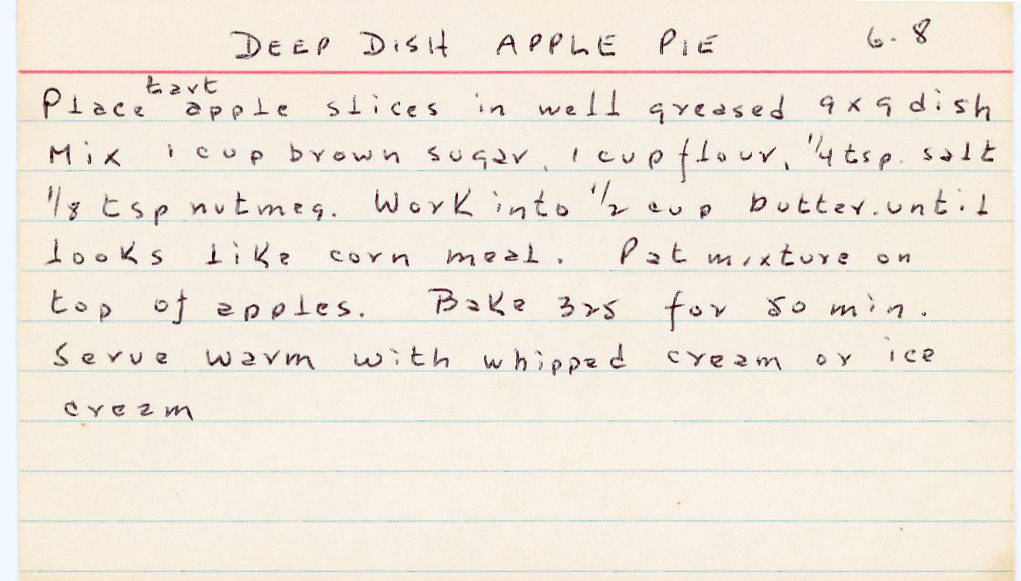 DEEP DISH APPLE PIE 6-8
tart
Place apple slices in well greased 9x9 dish
Mix 1 cup brown sugar, 1 cup flour, 1/4 tsp. salt
1/8 tsp nutmeg. Work into 1/2 cup butter. until
looks like corn meal. Pat mixture on
top of apples. Bake 325 for 50 min.
Serve warm with whipped cream or ice
cream